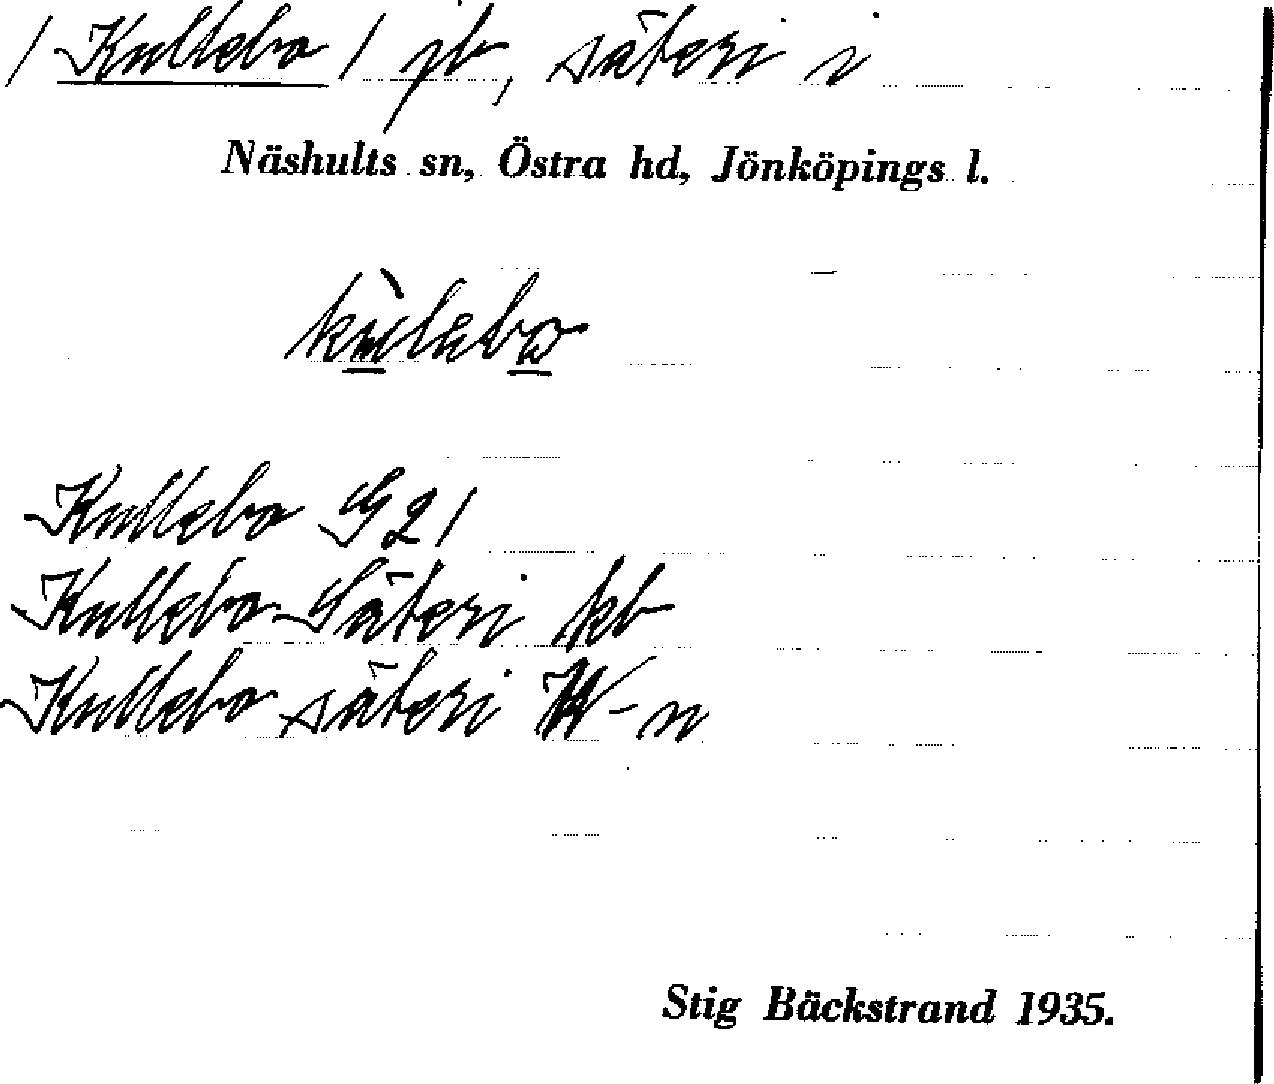 / Kullebo / jb, säteri i
Näshults sn, Östra hd, Jönköpings l.
kùlebo
Kullebo G 21
Kullebo Säteri kb
Kullebo säteri
Stig Bäckstrand 1935.